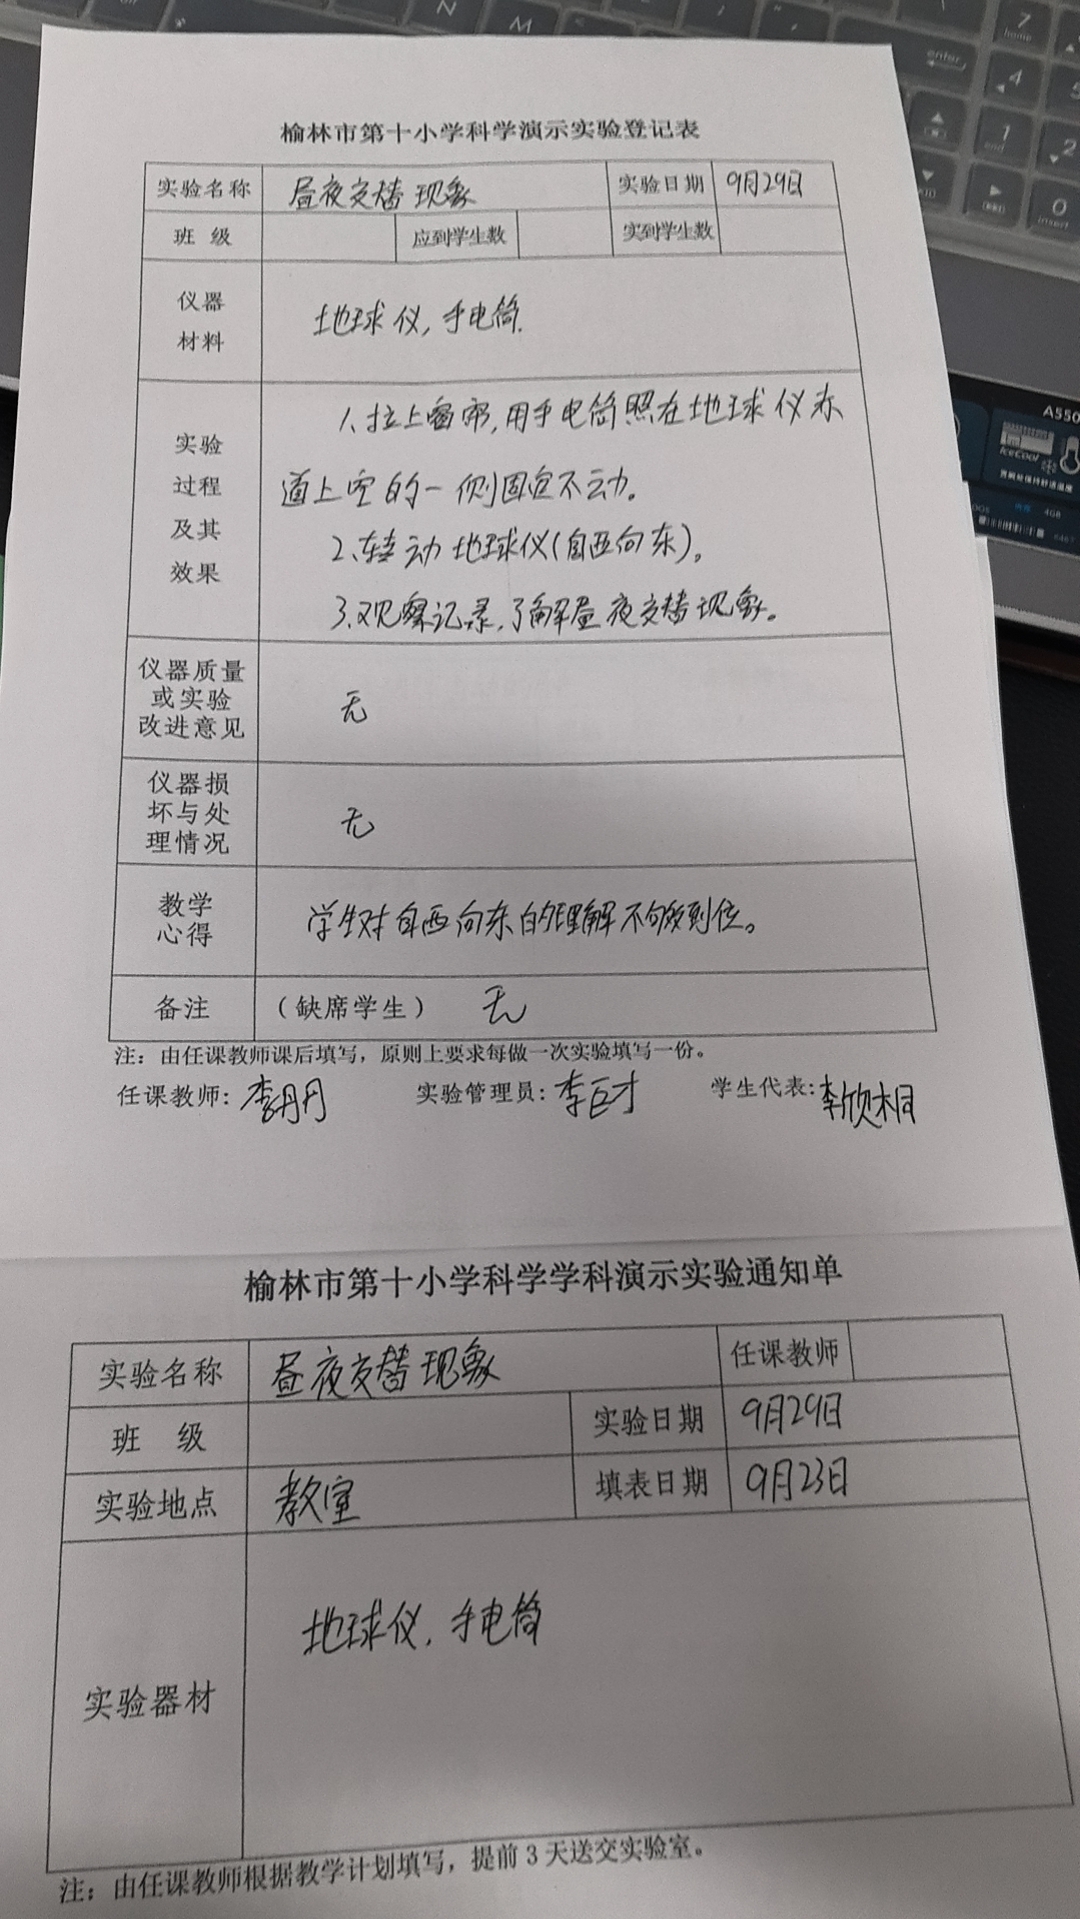 N
M
7
home
enter
4
5
1
end
2
0
insert
A550
IceCool
4GB
榆林市第十小学科学演示实验登记表
实验名称 昼夜交替现象 实验日期 9月29日
班 级 应到学生数 实到学生数
仪器
材料
地球仪,手电筒.
实验
过程
及其
效果
1、拉上窗帘,用手电筒照在地球仪赤
道上空的一侧固定不动。
2、转动地球仪(自西向东)。
3、观察记录,了解昼夜交替现象。
仪器质量
或实验
改进意见
无
仪器损
坏与处
理情况
无
教学
心得
学生对自西向东的理解不够到位。
备注 (缺席学生) 无
注:由任课教师课后填写,原则上要求每做一次实验填写一份。
任课教师:李丹丹 实验管理员:李巨才 学生代表:李欣桐
榆林市第十小学科学学科演示实验通知单
实验名称 昼夜交替现象 任课教师
班 级 实验日期 9月29日
实验地点 教室 填表日期 9月23日
实验器材 地球仪,手电筒
注:由任课教师根据教学计划填写,提前3天送交实验室。